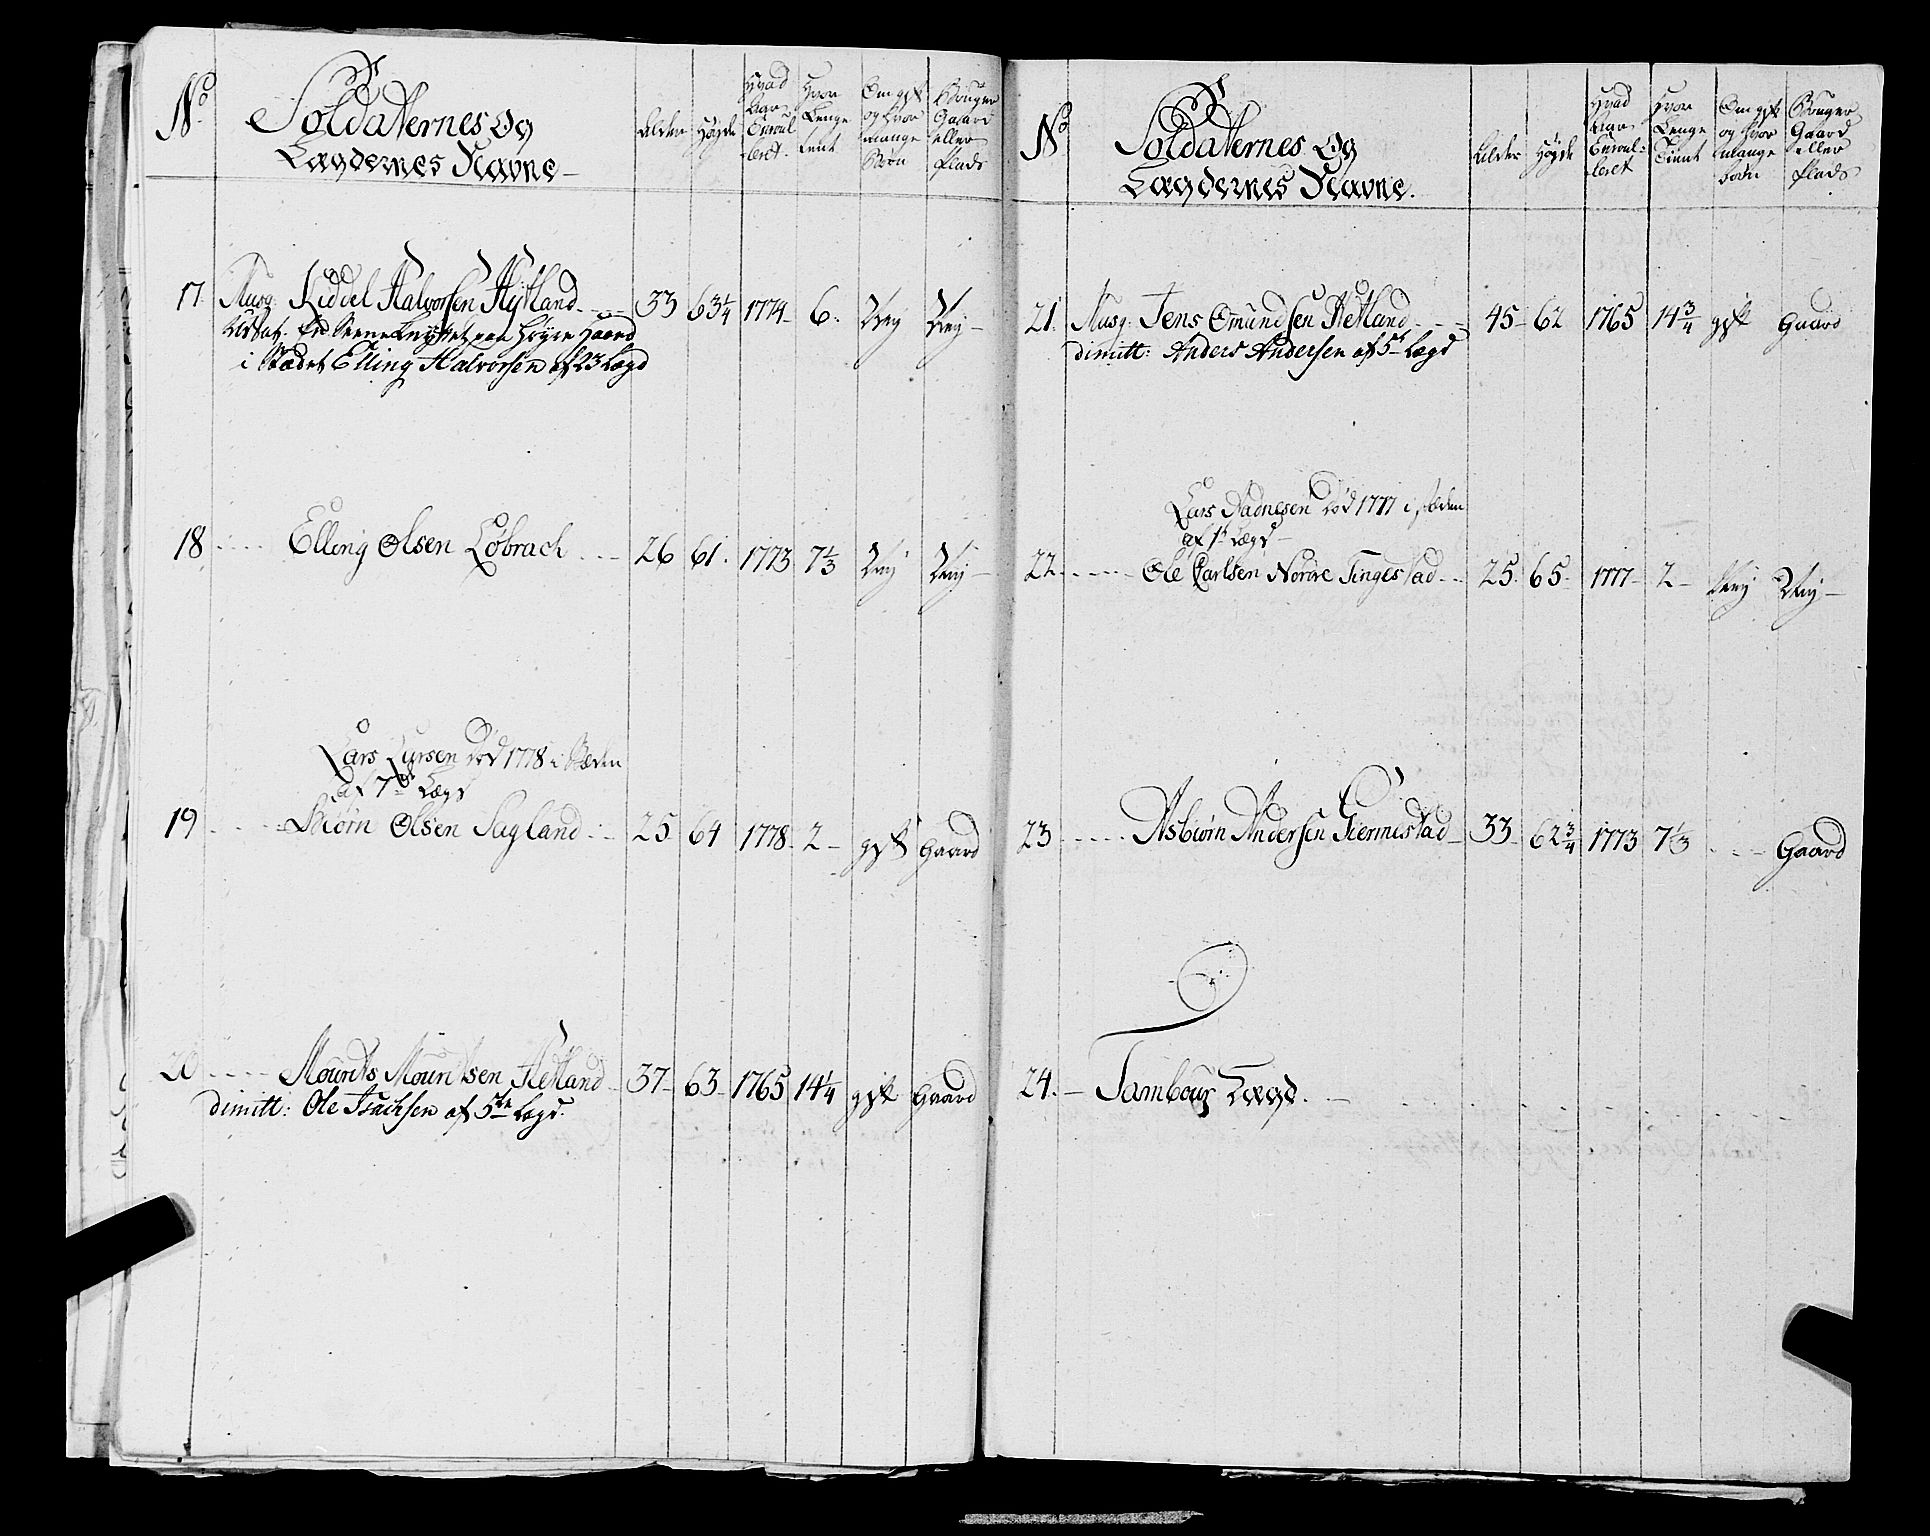 No
Soldaternes Og
Lægdernes Navne
Alder
Høyde
Hvad
Aar
Enroul
leret.
Hvor
Lenge
tient
Om gift
og hvor
mange
Børn
Bruger
Gaard
eller
Plads
17. Musq: Kiddel Halvorsen Hÿtland 33 63¼ 1774 6. Neÿ Neÿ
i Stædet Elling Halvorsen af 23 Lægd
18 Elling Olsen Løbrach 26 61. 1773 7⅓ Neÿ Neÿ
Lars Larsen død 1778 i Stæden
af 7de Lægd
19 Biørn Olsen Sagland 25 64 1778 2 gift Gaard
20 Mourits Mouritsen Hetland 37 63 1765 14¼ gift Gaard
dimitt: Ole Isachsen af 5te Lægd.
No
Soldaternes Og
Lægdernes Navne.
Alder
Høyde
Hvad
Aar
Enroul=
leret
Hvor
Lenge
Tient
Om gift
og hvor
mange
børn
Bruger
Gaard
eller
Plads
21. Musq: Jens Omundsen Hetland 45 62 1765 14¾ gift Gaard
dimitt: Anders Andersen af 5t Lægd
Lars Aadnesen død 1777 i stæden
af 1t Lægd
22 Ole Carlsen Nordre Tingestad 25 65 1777 2 Neÿ Neÿ
23 Asbiørn Andersen Giermestad 33 62¾ 1773 7⅓ Gaard
24. Tambour Lægd.